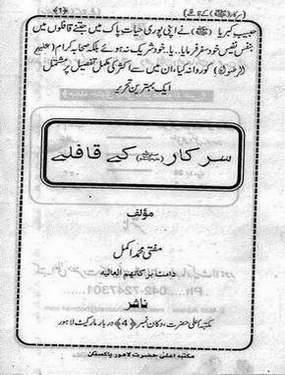 سرکار (ﷺ) کے قافلے
﴿1﴾
حبیب کبریا (ﷺ) نے اپنی پوری حیات پاک میں جتنے قافلوں میں
بنفس نفیس خود سفر فرمایا .. یا .. خود شریک نہ ہوئے بلکہ صحابہ کرام (علیہم
الرضوان) کو روانہ کیا، ان میں سے اکثر کی مکمل تفصیل پر مشتمل
ایک بہترین تحریر
سرکار (ﷺ) کے قافلے
مؤلف
مفتی محمد اکمل
دامت برکاتہم العالیہ
ناشر
مکتبہ اعلیٰ حضرت، دکان نمبر ﴿4﴾ دربار مارکیٹ لاہور
مکتبہ اعلیٰ حضرت لاہور پاکستان